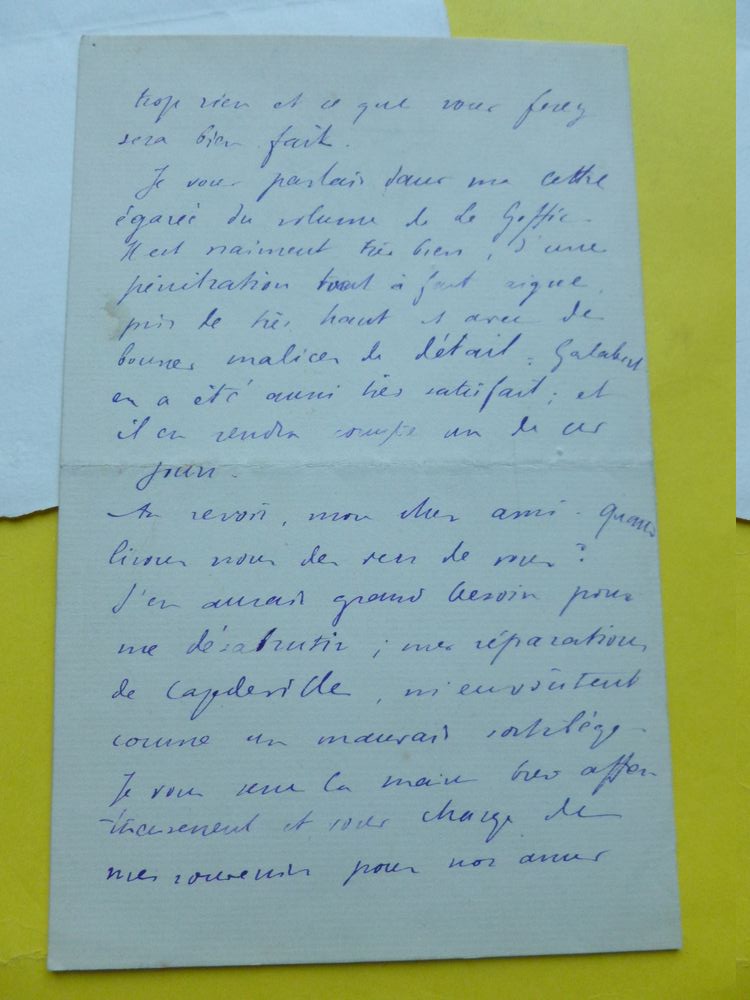 trop rien et ce que vous ferez
sera bien fait.
Je vous parlais dans ma lettre
égarée du volume de Le Goffic.
Il est vraiment très bien, d'une
pénétration tout à fait aigue,
pris de très haut et avec de
bonnes malices de détail. Galabert
en a été aussi très satisfait ; et
il en rendra compte un de ces
jours.
Au revoir, mon cher ami. Quand
lirons nous des vers de vous ?
J'en aurais grand besoin pour
me désabrutir ; mes réparations
de Capdeville, m'envoûtent
comme un mauvais sortilège.
Je vous serre la main bien affec-
tueusement et vous charge de
mes souvenirs pour nos amis